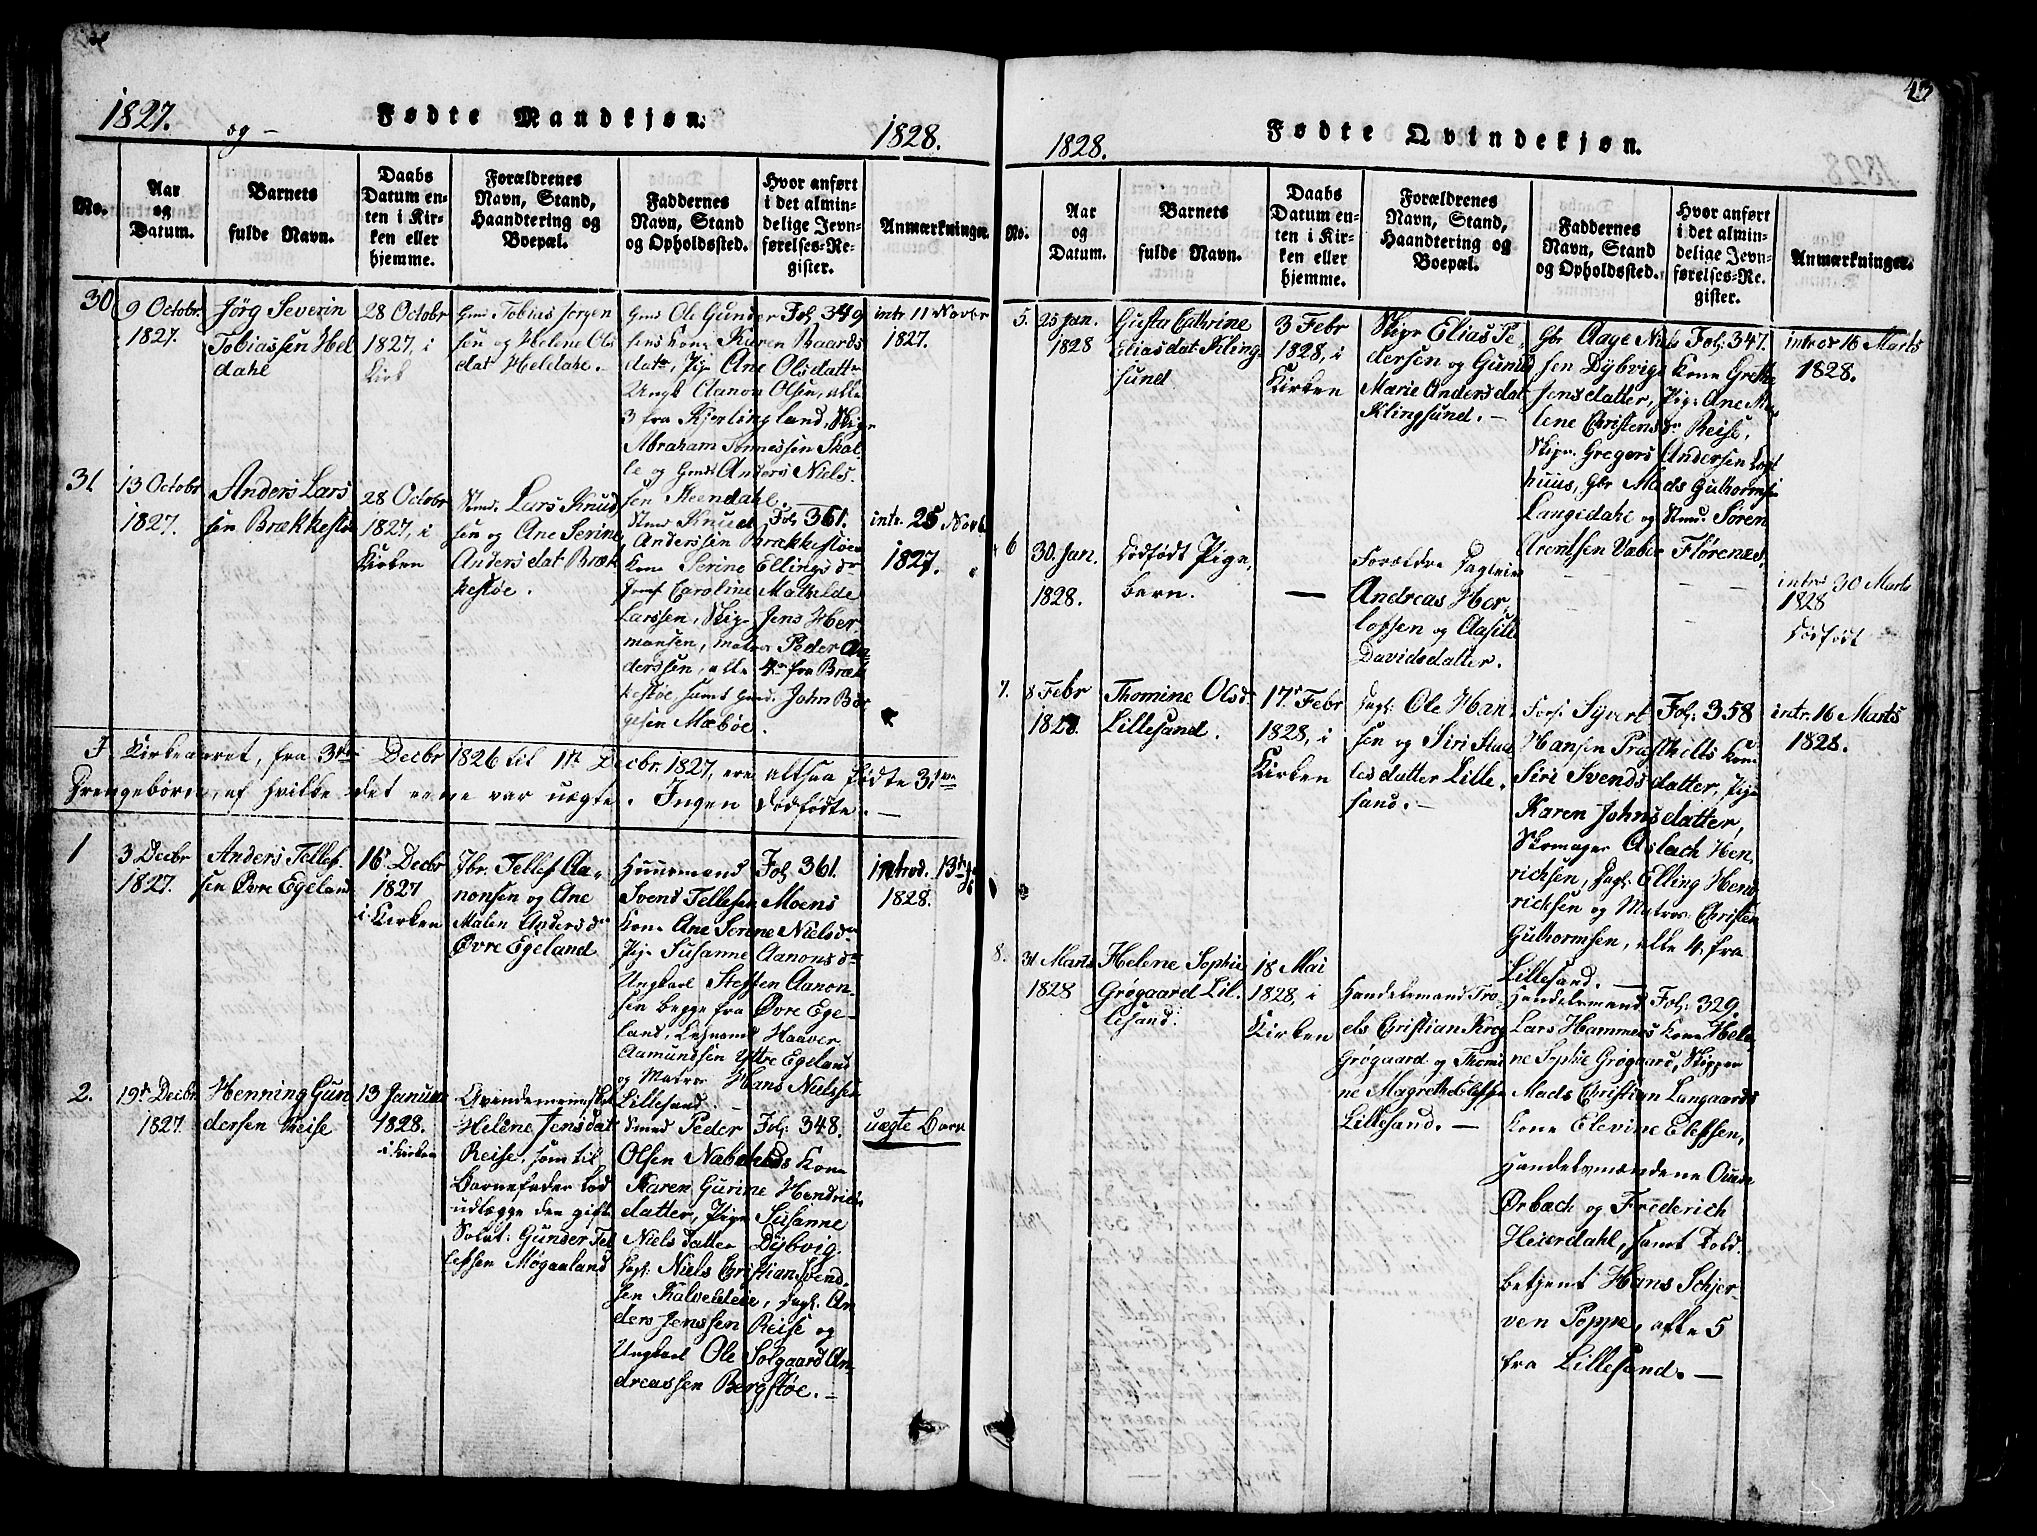 1827. og — Fødte Mandkjøn. 1828.
No.
Aar
og
Datum.
Barnets
fulde Navn.
Daabs
Datum en-
ten i Kir-
ken eller
hjemme.
Forældrenes
Navn, Stand,
Haandtering og
Boepæl.
Faddernes
Navn, Stand
og Opholdssted.
Hvor anført
i det almin-
delige Jevn-
førelses-Re-
gister.
Anmærkninger.
30
9 Octobr.
1827.
Jörg Severin
Tobiassen Hel
dahl
28 Octobr
1827, i
Kirk
Gmd Tobias Jörgen
sen og Helene Ols
dat Heldahl.
Gmd Ole Gunder
sens Kone Karen Baards
datr, Pige Ane Olsdattr
Ungk Aanon Olsen, alle
3 fra Kjerlingland, Skipr
Abraham Tønnessen Skal
le og Gmd Anders Niels
sen Steendahl.
Fol 349
intr 11 Novbr
1827.
31
13 Octobr
1827.
Anders Lars
sen Brækkestø
28 Octobr
1827, i
Kirken
Smd. Lars Knud
sen og Ane Serine
Andersdat Bræk
kestøe.
Smd Knud
Anderssen Brækkestøes
Kone Serine Ellingsdr
Jomf Caroline Mathilde
Larssen, Skipr Jens Her
mansen, matros Peder An
derssen, alle 4re fra Bræk
kestøe, samt Gmd. John Bør
gesen Mæbøe.
Fol 361.
intr. 25 Novb.
1827.
I Kirkeaaret, fra 3die Decbr 1826 til 1te Decbr. 1827, ere altsaa födte 31
Drengebørn, af hvilke det eene var uægte. Ingen dødfødte. —
1
3 Decbr
1827.
Anders Tellef
sen Øvre Egeland
16 Decbr
1827
i Kirken
Gbr. Tellef Aa-
nonsen og Ane
Malen Andersdr
Øvre Egeland
Huusmand
Svend Tellefsen Moens
Kone Ane Serine Nielsdr
Pige Susanne Aanonsdr
Ungkarl Steffen Aanon-
sen begge fra Øvre Ege-
land, Legnsmd Haaver
Aamundsen Yttre Egeland
og Matros Hans Nielssen
Lillesand. —
Fol 361.
introd. 13
1828.
2.
19 Decbr.
1827.
Henning Gun
dersen Reise
13 Januar
1828.
i Kirken
Qvindemennisket
Helene Jensdat
Reise, som til
Barnefader lod
udlægge den gifte
Soldt: Gunder Tel
lefsen Møgaaland
Smed Peder
Olsen Nabelands Kone
Karen Gurine Hendrichs
datter, Pige Susanne
Nielsdatter Dybvig,
Dagl: Niels Christian Svend
sen Kalvehleie, Dagl. An
ders Jenssen Reise og
Ungkarl Ole Solgaard An
dreassen Bergstøe. —
Fol. 348.
uægte Barn
43
1828. Fødte Qvindekjøn.
No.
Aar
og
Datum.
Barnets
fulde Navn.
Daabs
Datum en-
ten i Kir-
ken eller
hjemme.
Forældrenes
Navn, Stand,
Haandtering og
Boepæl.
Faddernes
Navn, Stand
og Opholdssted.
Hvor anført
i det almin-
delige Jevn-
førelses-Re-
gister.
Anmærkninger.
5.
25 Jan.
1828
Gusta Cathrine
Eliasdat Kling
sund
3 Febr
1828, i
Kirken
Skipr Elias Pe-
dersen og Gunild
Marie Andersdat
Klingsund. —
Gbr Aage Niel
sen Dÿbvigs Kone Grethe
Jensdatter, Pige Ane Ma
lene Christensdr Reise,
Skipr. Gregers Andersen Loft
huus, Gbr Mads Guthormsen
Langedahl og Smd. Søren
Arentsen Vaber Florenæs.
Fol. 347.
introd 16 Marts
1828.
6
30. Jan.
1828.
Dödfödt Pige,
barn.
—
Forældre Dagleier
Andreas Her,
lofsen og Aasille
Davidsdatter.
—
—
introd 30 Marts
1828
dödfödt
7.
8 Febr
1828.
Thomine Olsd.
Lillesand.
17 Febr
1828, i
Kirken
Dagl. Ole Han
sen og Siri
lesdatter Lille,
sand. —
Sÿvert
Hansen Præsthells Kone
Siri Svendsdatter, Pige
Karen Johnsdatter,
Skomager Aslach Hen,
richsen, Dagl. Elling Hend
ricksen og Matros Christen
Guthormsen, alle 4. fra
Lillesand. —
Fol. 358
intr. 16 Marts
1828.
8.
31 Marts
1828
Helene Sophie
Grøgaard Lil.
lesand.
18 Mai
1828, i
Kirken
Handelsmand Tro-
els Christian Krog
Grøgaard og Thomi
ne Magrethe Eleffsen
Lillesand. —
Handelsmand
Lars Hammers Kone Hele
ne Sophie Grøgaard, Skipper
Mads Christian Langaards
Kone Elevine Eleffsen,
Handelsmændene Ounn
Ørbæch og Frederich
Heierdahl, samt Told.
betjent Hans Schjer-
ven Poppe, alle 5
fra Lillesand. —
Fol: 329.